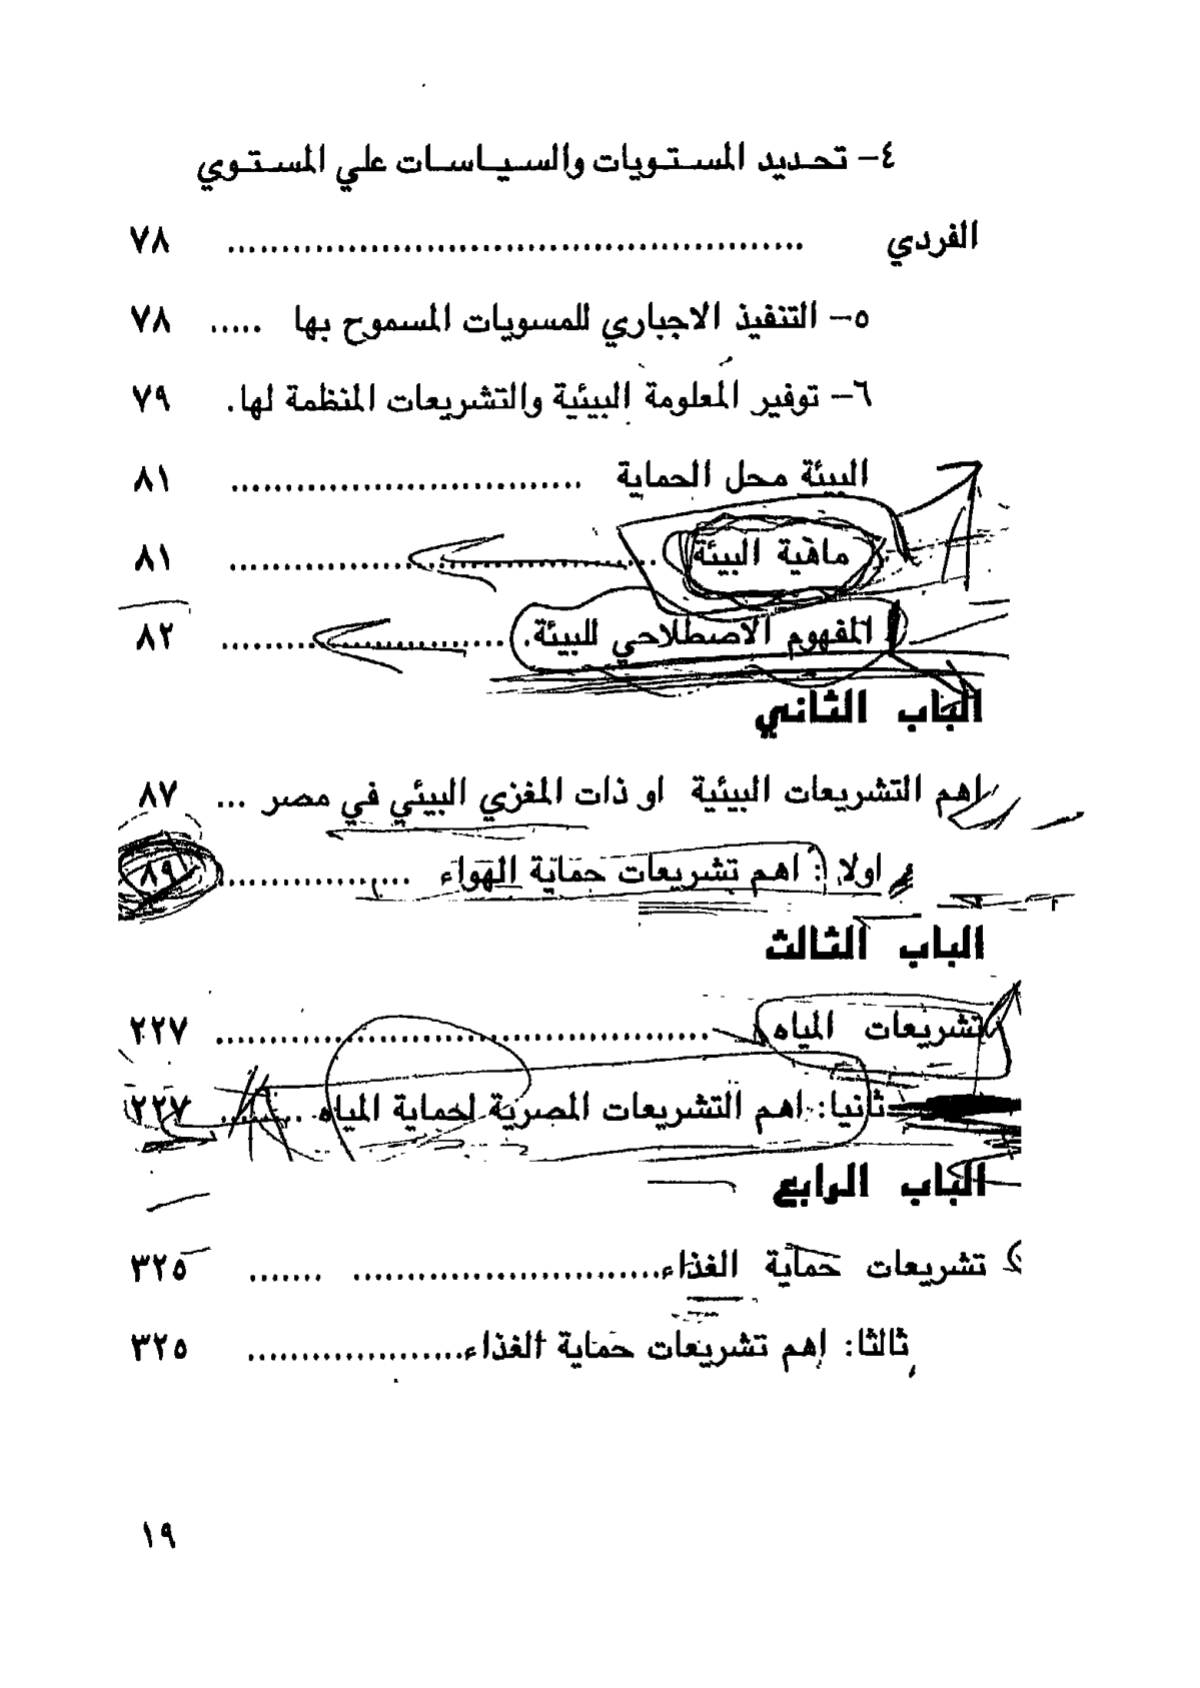 ٤- تحديد المستويات والسياسات علي المستوي
الفردي .................................................... ٧٨
٥- التنفيذ الاجباري للمسويات المسموح بها ..... ٧٨
٦- توفير المعلومة البيئية والتشريعات المنظمة لها. ٧٩
البيئة محل الحماية ................................ ٨١
ماهية البيئة ....................................... ٨١
المفهوم الاصطلاحي للبيئة. .......................... ٨٢
الباب الثاني
اهم التشريعات البيئية او ذات المغزي البيئي في مصر ... ٨٧
اولا : اهم تشريعات حماية الهواء .................. ٨٩
الباب الثالث
تشريعات المياه ............................................. ٢٢٧
ثانيا: اهم التشريعات المصرية لحماية المياه ........ ٢٢٧
الباب الرابع
تشريعات حماية الغذاء............................ ....... ٣٢٥
ثالثا: اهم تشريعات حماية الغذاء.................... ٣٢٥
١٩